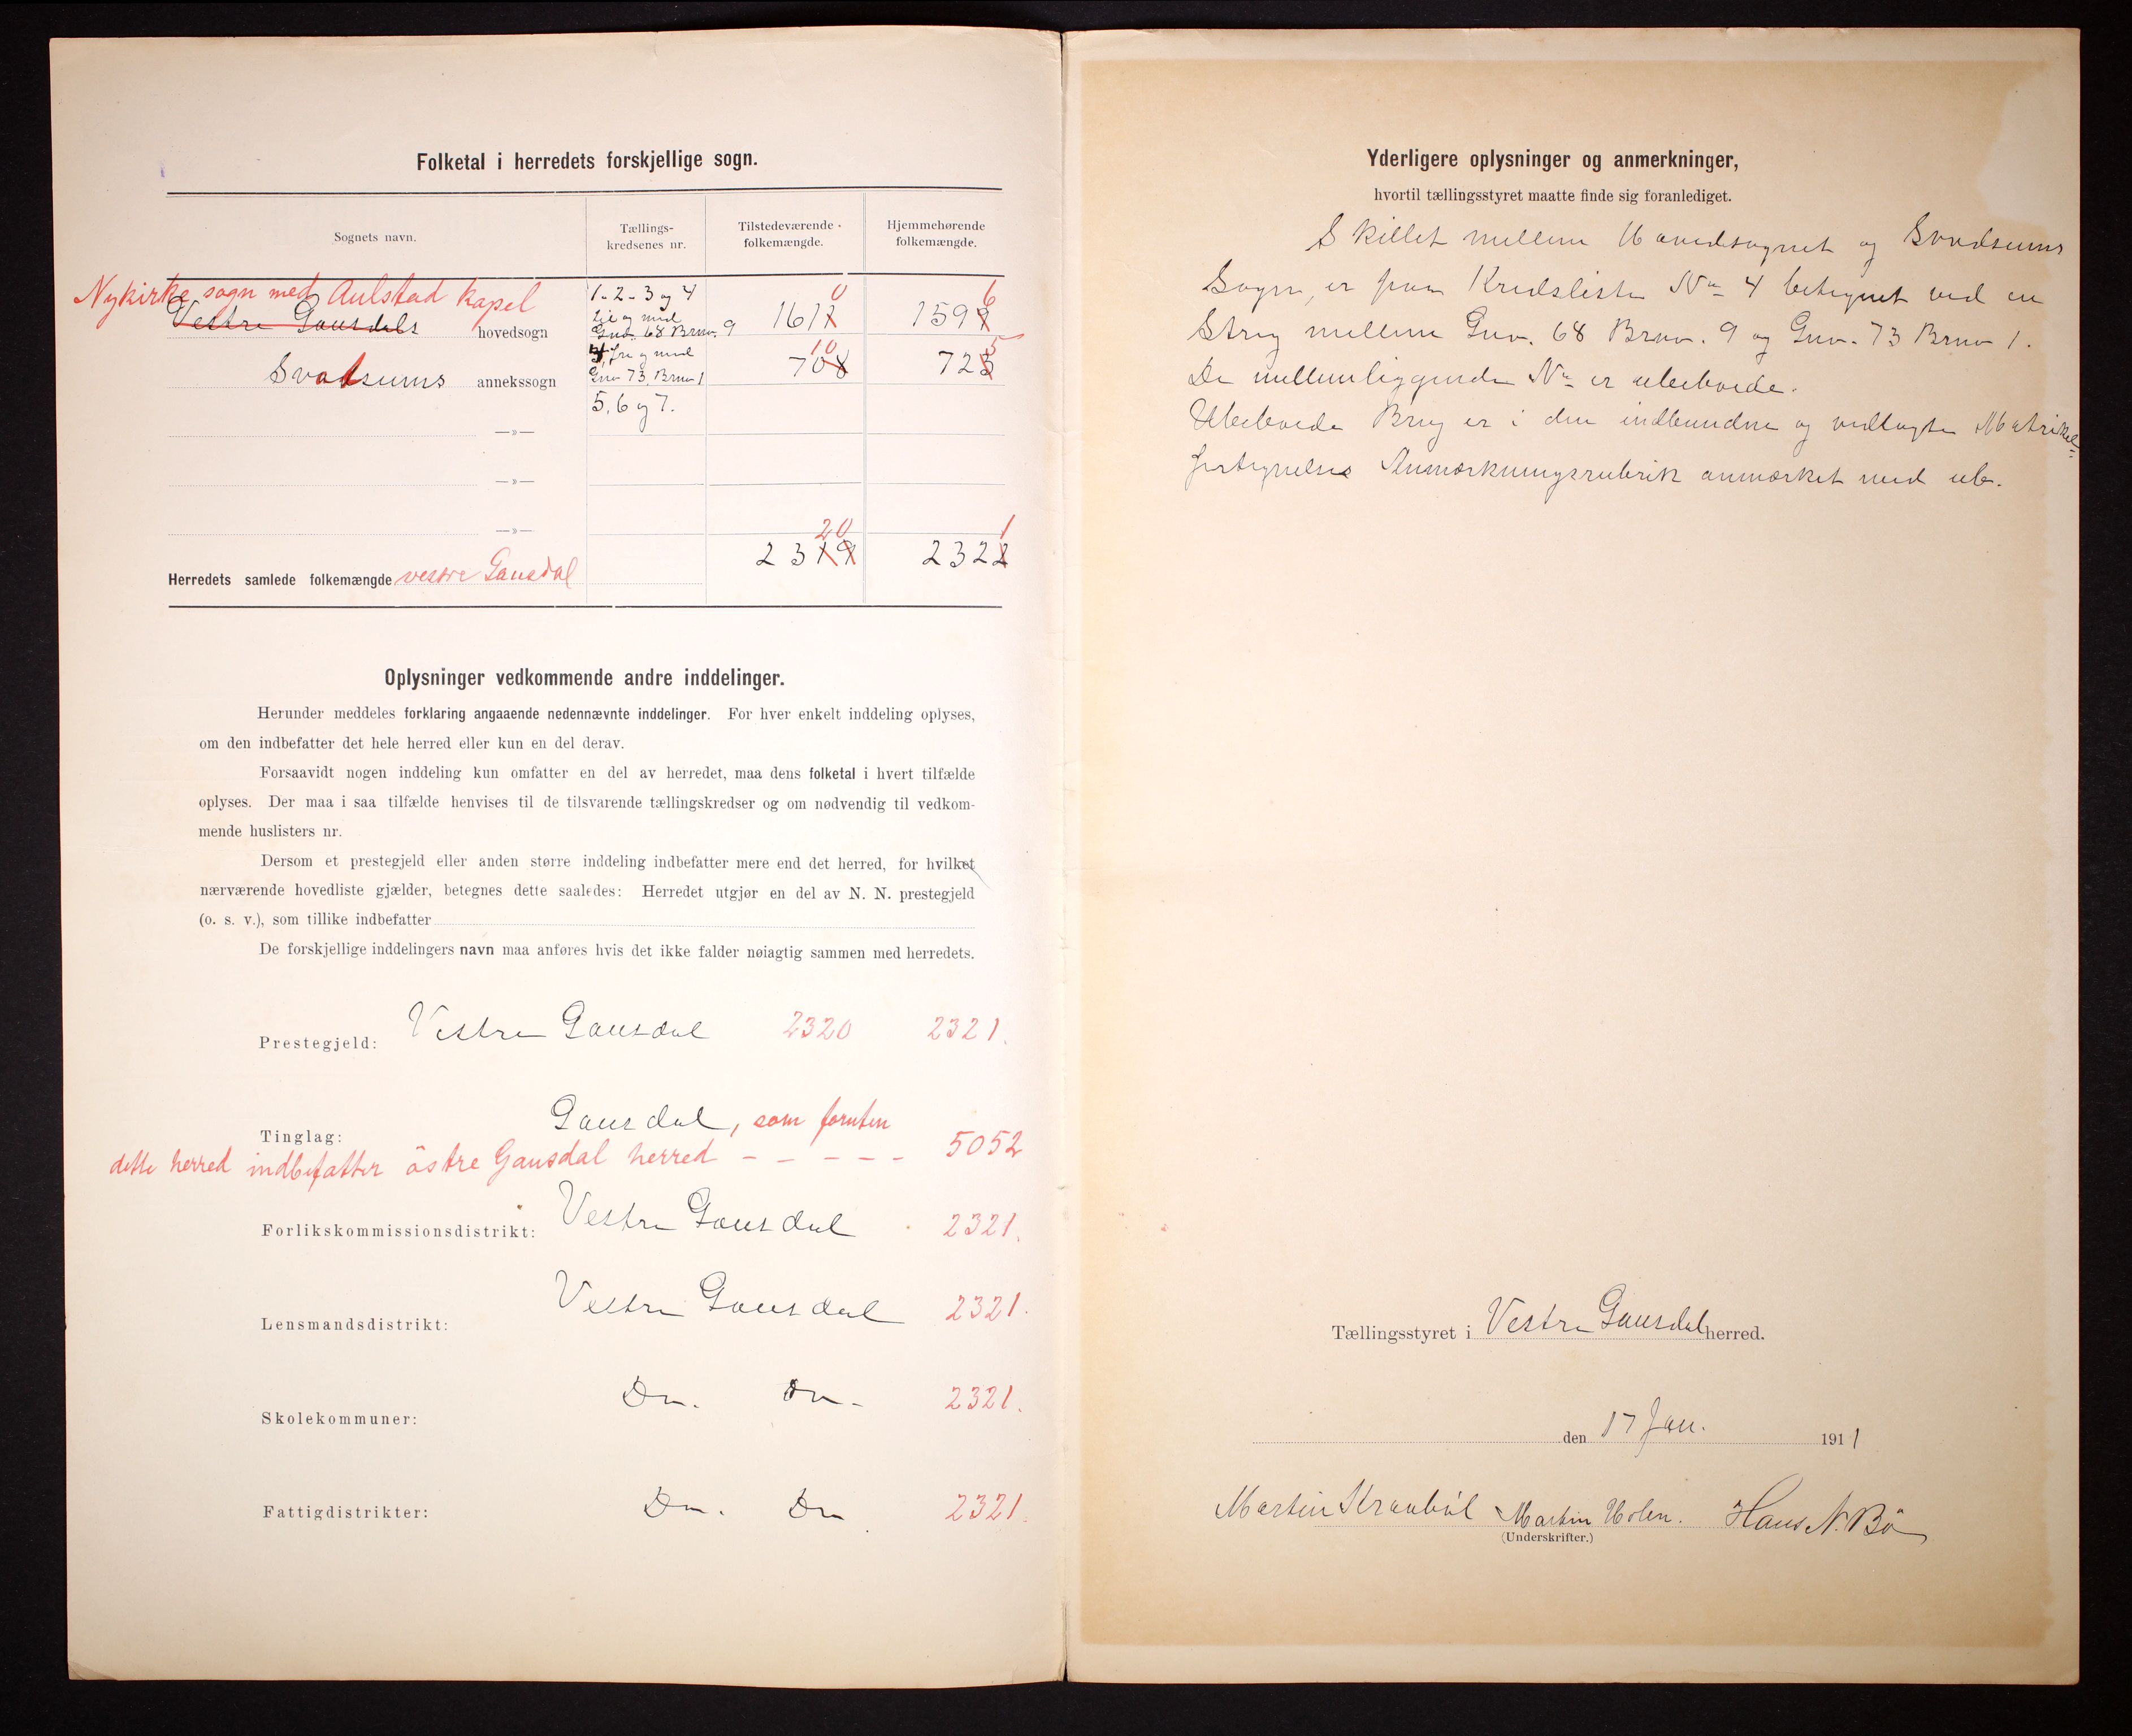 Folketal i herredets forskjellige sogn.
Sognets navn.
Tællings-
kredsenes nr.
Tilstedeværende
folkemængde.
Hjemmehørende
folkemængde.
Nykirke sogn med Aulstad kapel
Vestre Gausdals hovedsogn
1-2-3 og 4
til og med
Gnv. 68 Brnv. 9
1611 0
1599 6
Svatsums annekssogn
4, fra og med
Gnv 73 Brnv 1
5, 6 og 7.
708 10
723 5
—»—
—»—
—»—
Herredets samlede folkemængde vestre Gausdal
2319 20
2322 1
Oplysninger vedkommende andre inddelinger.
Herunder meddeles forklaring angaaende nedennævnte inddelinger. For hver enkelt inddeling oplyses,
om den indbefatter det hele herred eller kun en del derav.
Forsaavidt nogen inddeling kun omfatter en del av herredet, maa dens folketal i hvert tilfælde
oplyses. Der maa i saa tilfælde henvises til de tilsvarende tællingskredser og om nødvendig til vedkom-
mende huslisters nr.
Dersom et prestegjeld eller anden større inddeling indbefatter mere end det herred, for hvilket
nærværende hovedliste gjælder, betegnes dette saaledes: Herredet utgjør en del av N. N. prestegjeld
(o. s. v.), som tillike indbefatter
De forskjellige inddelingers navn maa anføres hvis det ikke falder nøiagtig sammen med herredets.
Prestegjeld: Vestre Gausdal 2320 2321.
Tinglag: Gausdal, som foruten
dette herred indbefatter östre Gausdal herred - - - - - 5052
Forlikskommissionsdistrikt: Vestre Gausdal 2321.
Lensmandsdistrikt: Vestre Gausdal 2321.
Skolekommuner: Do. Do. 2321.
Fattigdistrikter: Do. Do 2321.
Yderligere oplysninger og anmerkninger,
hvortil tællingsstyret maatte finde sig foranlediget.
Skillet mellem Hovedsognet og Svadsums
Sogn, er paa Kredsliste No 4 betegnet ved en
Streg mellem Gnv. 68 Brnv. 9 og Gnv. 73 Brnv 1.
De mellemliggende No er ubeboede.
Ubeboede Brug er i den indbundne og vedlagte Matrikel-
fortegnelses Anmærkningsrubrik anmærket med ub.
Tællingsstyret i Vestre Gausdal herred.
den 17 Jan. 1911
Martin Kraabøl Martin Holen. Hans N. Bö
(Underskrifter.)